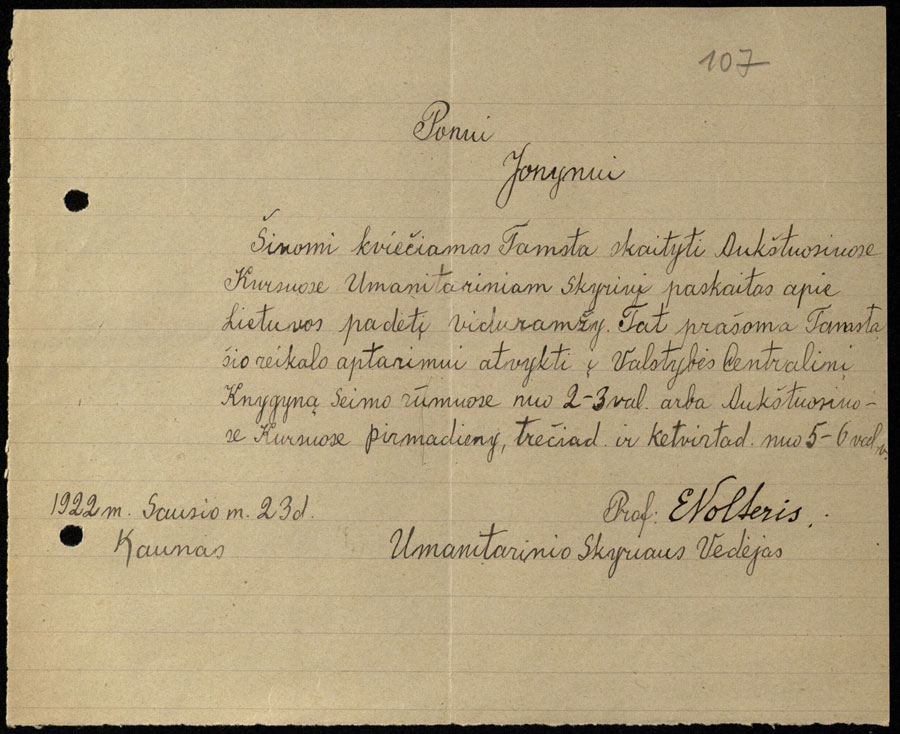 107
Ponui
Jonynui
Šinomi kviečiamas Tamsta skaityti Aukštuosiuose
Kursuose Umanitariniam Skyriuj paskaitas apie
Lietuvos padėtį viduramžy. Tat prašoma Tamsta
šio reikalo aptarimui atvykti į Valstybės Centralinį
Knygyną Seimo rūmuose nuo 2-3 val. arba Aukštuosiuo-
se Kursuose pirmadieny, trečiad. ir ketvirtad. nuo 5-6 val. v.
1922 m. Sausio m. 23 d. Prof: EVolteris.
Kaunas Umanitarinio Skyriaus Vedėjas